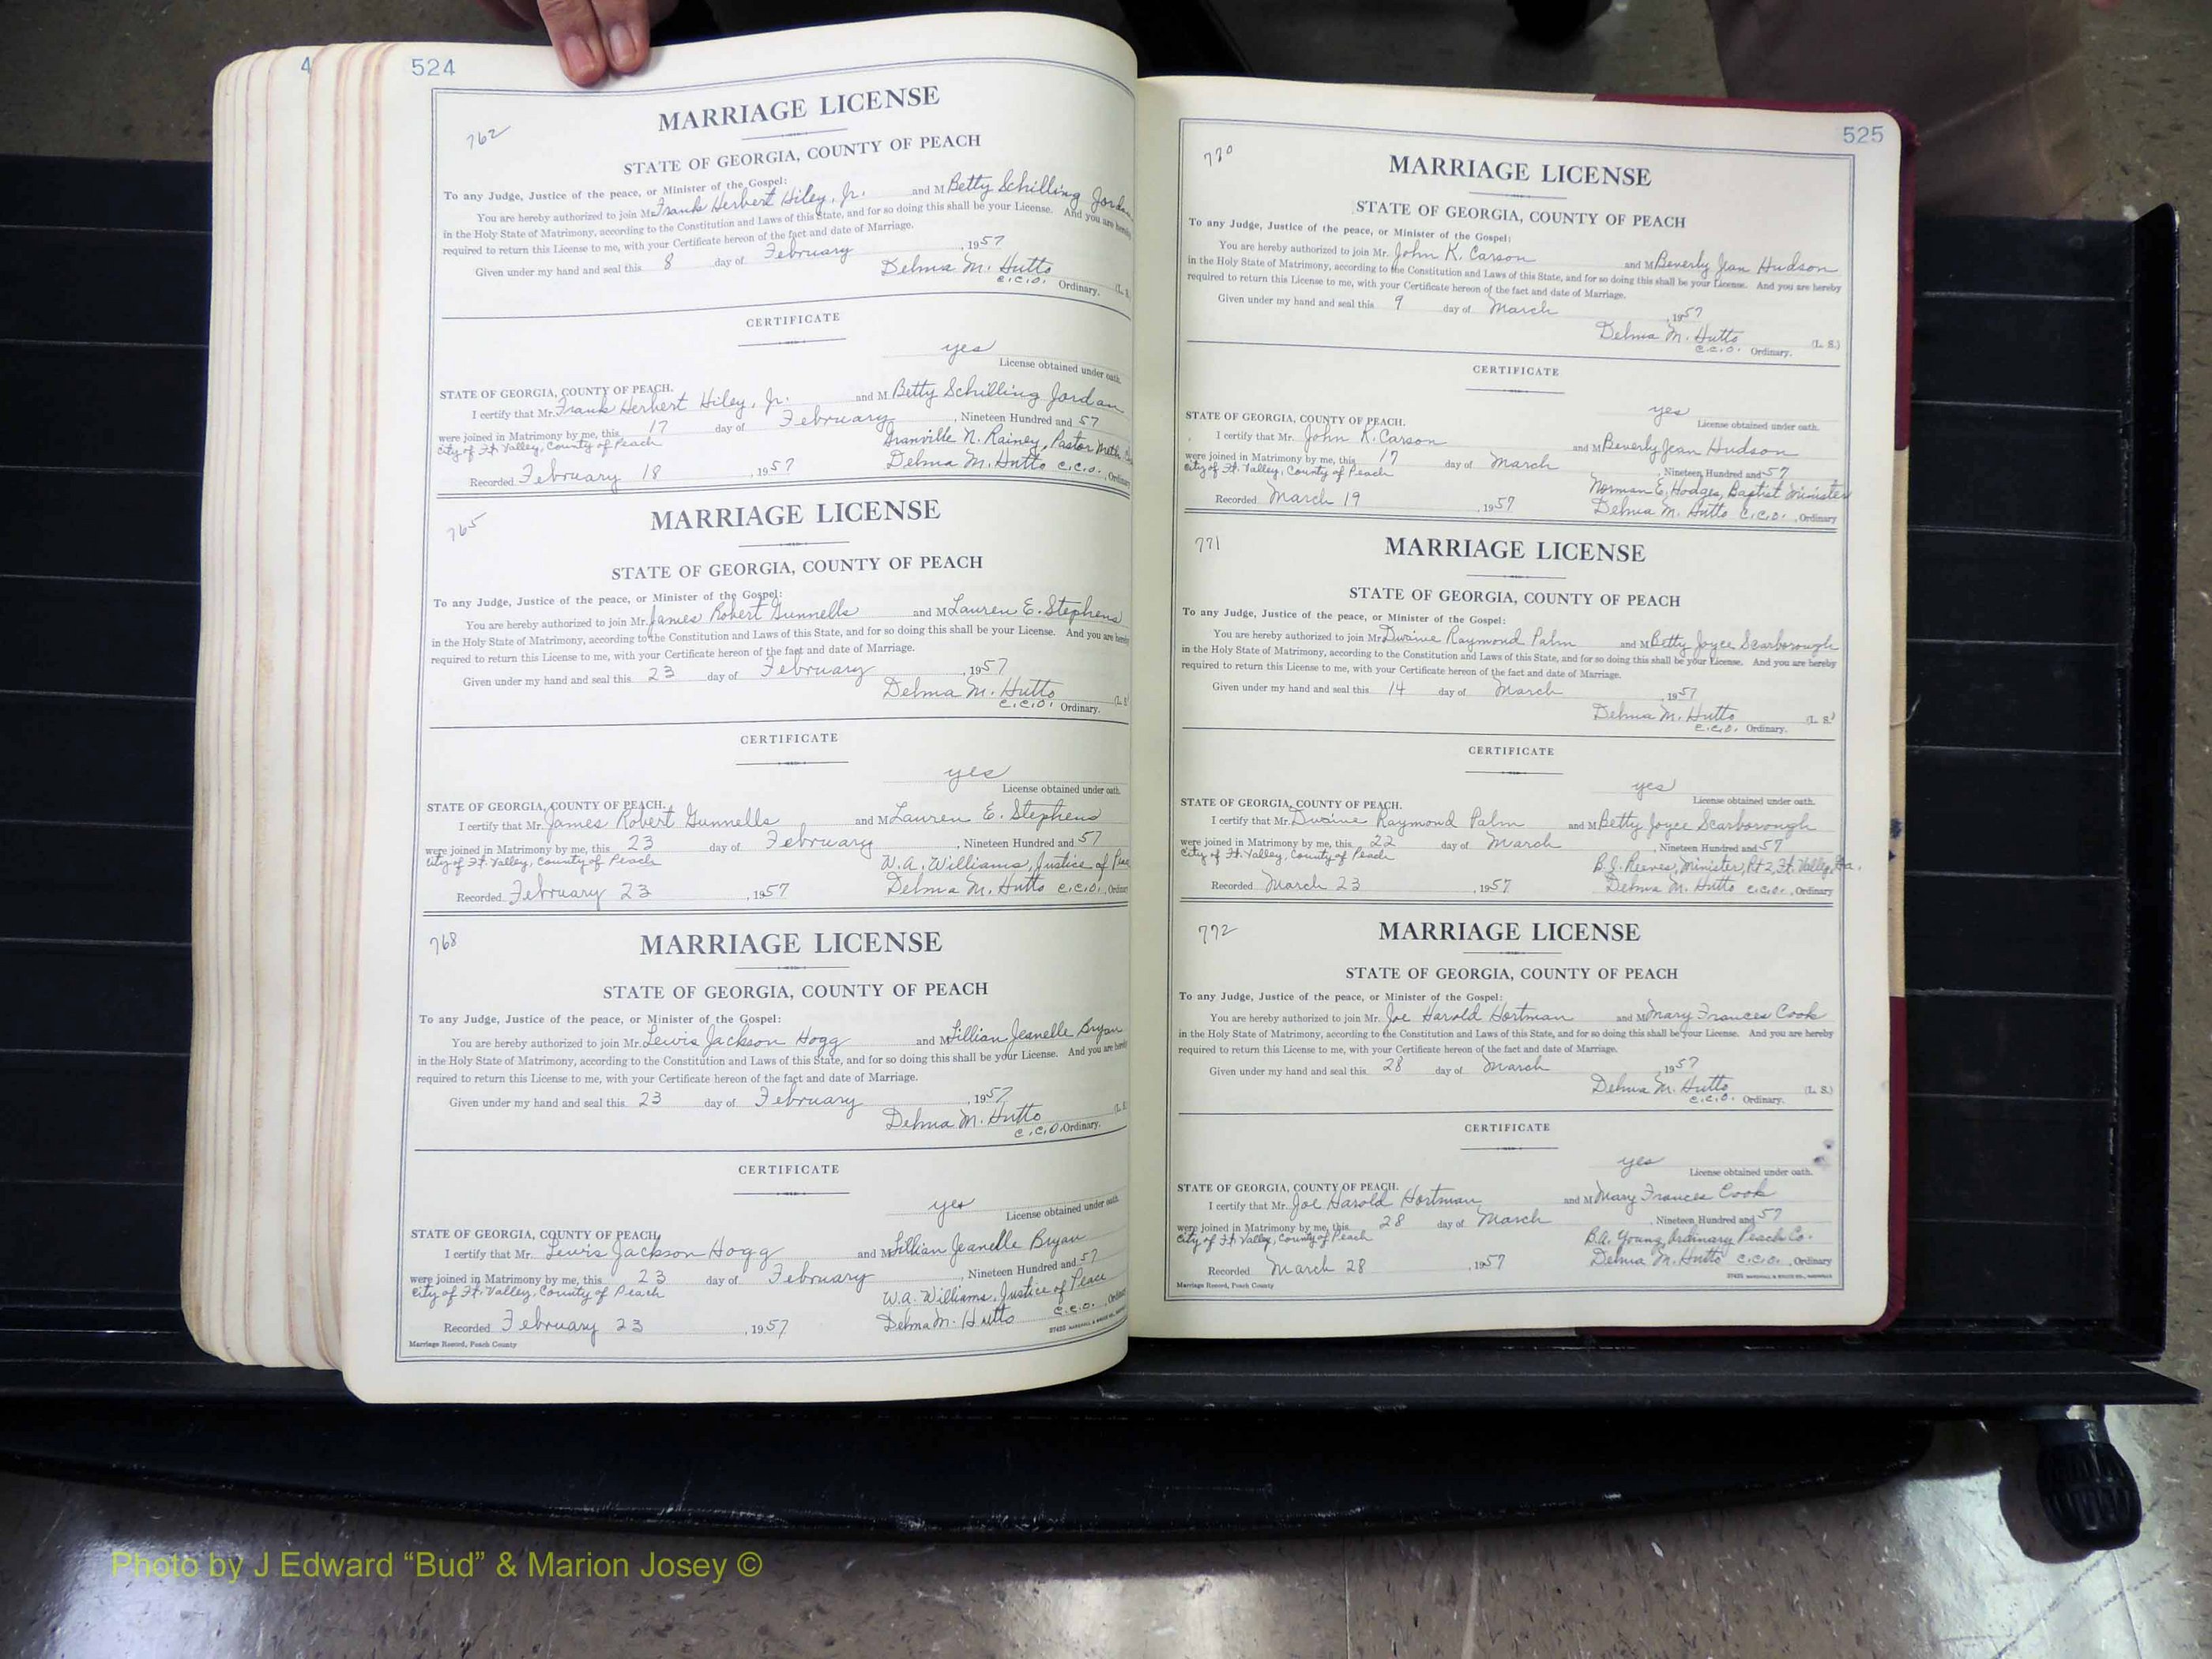 4
524
762
MARRIAGE LICENSE
STATE OF GEORGIA, COUNTY OF PEACH
To any Judge, Justice of the peace, or Minister of the Gospel:
You are hereby authorized to join Mr. Frank Herbert Hiley, Jr. and M Betty Schilling Jordan
in the Holy State of Matrimony, according to the Constitution and Laws of this State, and for so doing this shall be your License. And you are hereby
required to return this License to me, with your Certificate hereon of the fact and date of Marriage.
Given under my hand and seal this 8 day of February, 1957
Delma M. Hutto (L. S.
C.C.O. Ordinary.
CERTIFICATE
yes
License obtained under oath.
STATE OF GEORGIA, COUNTY OF PEACH.
I certify that Mr. Frank Herbert Hiley, Jr. and M Betty Schilling Jordan
were joined in Matrimony by me, this 17 day of February, Nineteen Hundred and 57
City of Ft. Valley, County of Peach Granville N. Rainey, Pastor Meth.
Recorded February 18, 1957 Delma M. Hutto C.C.O., Ordinary
765
MARRIAGE LICENSE
STATE OF GEORGIA, COUNTY OF PEACH
To any Judge, Justice of the peace, or Minister of the Gospel:
You are hereby authorized to join Mr. James Robert Gunnells and M Lauren E. Stephens
in the Holy State of Matrimony, according to the Constitution and Laws of this State, and for so doing this shall be your License. And you are hereby
required to return this License to me, with your Certificate hereon of the fact and date of Marriage.
Given under my hand and seal this 23 day of February, 1957
Delma M. Hutto (L. S.
C.C.O. Ordinary.
CERTIFICATE
yes
License obtained under oath.
STATE OF GEORGIA, COUNTY OF PEACH.
I certify that Mr. James Robert Gunnells and M Lauren E. Stephens
were joined in Matrimony by me, this 23 day of February, Nineteen Hundred and 57
City of Ft. Valley, County of Peach W.A. Williams, Justice of Peace
Recorded February 23, 1957 Delma M. Hutto C.C.O., Ordinary
768
MARRIAGE LICENSE
STATE OF GEORGIA, COUNTY OF PEACH
To any Judge, Justice of the peace, or Minister of the Gospel:
You are hereby authorized to join Mr. Lewis Jackson Hogg and M Lillian Jeanelle Bryan
in the Holy State of Matrimony, according to the Constitution and Laws of this State, and for so doing this shall be your License. And you are hereby
required to return this License to me, with your Certificate hereon of the fact and date of Marriage.
Given under my hand and seal this 23 day of February, 1957
Delma M. Hutto (L. S.
C.C.O. Ordinary.
CERTIFICATE
yes
License obtained under oath.
STATE OF GEORGIA, COUNTY OF PEACH.
I certify that Mr. Lewis Jackson Hogg and M Lillian Jeanelle Bryan
were joined in Matrimony by me, this 23 day of February, Nineteen Hundred and 57
City of Ft. Valley, County of Peach W.A. Williams, Justice of Peace
Recorded February 23, 1957 Delma M. Hutto C.C.O., Ordinary
Marriage Record, Peach County
525
770
MARRIAGE LICENSE
STATE OF GEORGIA, COUNTY OF PEACH
To any Judge, Justice of the peace, or Minister of the Gospel:
You are hereby authorized to join Mr. John K. Carson and M Beverly Jean Hudson
in the Holy State of Matrimony, according to the Constitution and Laws of this State, and for so doing this shall be your License. And you are hereby
required to return this License to me, with your Certificate hereon of the fact and date of Marriage.
Given under my hand and seal this 9 day of March, 1957
Delma M. Hutto (L. S.)
C.C.O. Ordinary.
CERTIFICATE
yes
License obtained under oath.
STATE OF GEORGIA, COUNTY OF PEACH.
I certify that Mr. John K. Carson and M Beverly Jean Hudson
were joined in Matrimony by me, this 17 day of March, Nineteen Hundred and 57
City of Ft. Valley, County of Peach Norman E. Hodges, Baptist Minister
Recorded March 19, 1957 Delma M. Hutto C.C.O., Ordinary
771
MARRIAGE LICENSE
STATE OF GEORGIA, COUNTY OF PEACH
To any Judge, Justice of the peace, or Minister of the Gospel:
You are hereby authorized to join Mr. Dwaine Raymond Palm and M Betty Joyce Scarborough
in the Holy State of Matrimony, according to the Constitution and Laws of this State, and for so doing this shall be your License. And you are hereby
required to return this License to me, with your Certificate hereon of the fact and date of Marriage.
Given under my hand and seal this 14 day of March, 1957
Delma M. Hutto (L. S.)
C.C.O. Ordinary.
CERTIFICATE
yes
License obtained under oath.
STATE OF GEORGIA, COUNTY OF PEACH.
I certify that Mr. Dwaine Raymond Palm and M Betty Joyce Scarborough
were joined in Matrimony by me, this 22 day of March, Nineteen Hundred and 57
City of Ft. Valley, County of Peach B.J. Reeves, Minister, Rt 2, Ft. Valley, Ga.
Recorded March 23, 1957 Delma M. Hutto C.C.O., Ordinary
772
MARRIAGE LICENSE
STATE OF GEORGIA, COUNTY OF PEACH
To any Judge, Justice of the peace, or Minister of the Gospel:
You are hereby authorized to join Mr. Joe Harold Hortman and M Mary Frances Cook
in the Holy State of Matrimony, according to the Constitution and Laws of this State, and for so doing this shall be your License. And you are hereby
required to return this License to me, with your Certificate hereon of the fact and date of Marriage.
Given under my hand and seal this 28 day of March, 1957
Delma M. Hutto (L. S.)
C.C.O. Ordinary.
CERTIFICATE
yes
License obtained under oath.
STATE OF GEORGIA, COUNTY OF PEACH.
I certify that Mr. Joe Harold Hortman and M Mary Frances Cook
were joined in Matrimony by me, this 28 day of March, Nineteen Hundred and 57
City of Ft. Valley, County of Peach B.A. Young, Ordinary Peach Co.
Recorded March 28, 1957 Delma M. Hutto C.C.O., Ordinary
Marriage Record, Peach County
Photo by J Edward “Bud” & Marion Josey ©